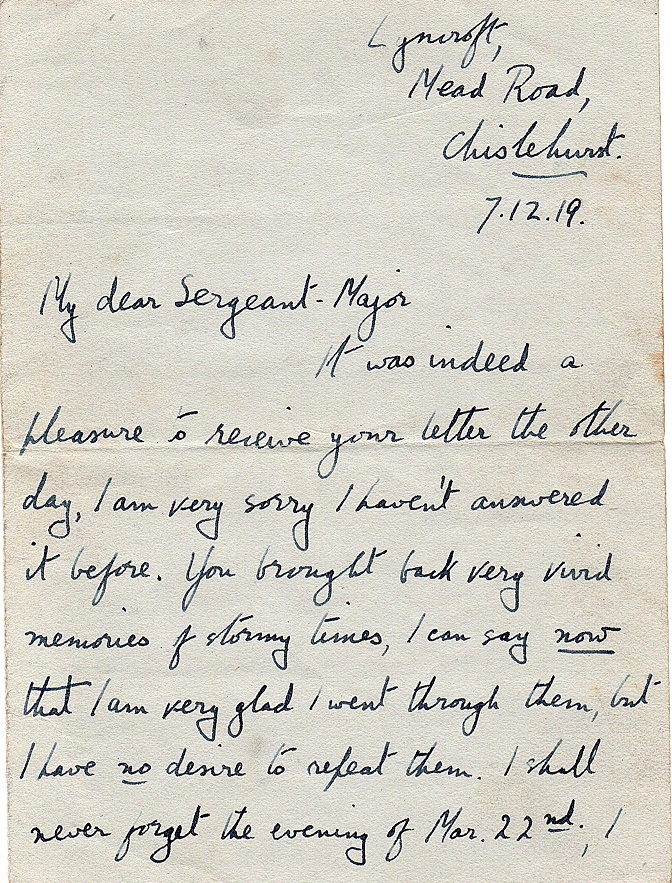 Lyncroft,
Mead Road,
Chislehurst.
7.12.19.
My dear Sergeant-Major
It was indeed a
pleasure to receive your letter the other
day, I am very sorry I haven't answered
it before. You brought back very vivid
memories of stormy times, I can say now
that I am very glad I went through them, but
I have no desire to repeat them. I shall
never forget the evening of Mar. 22nd., I